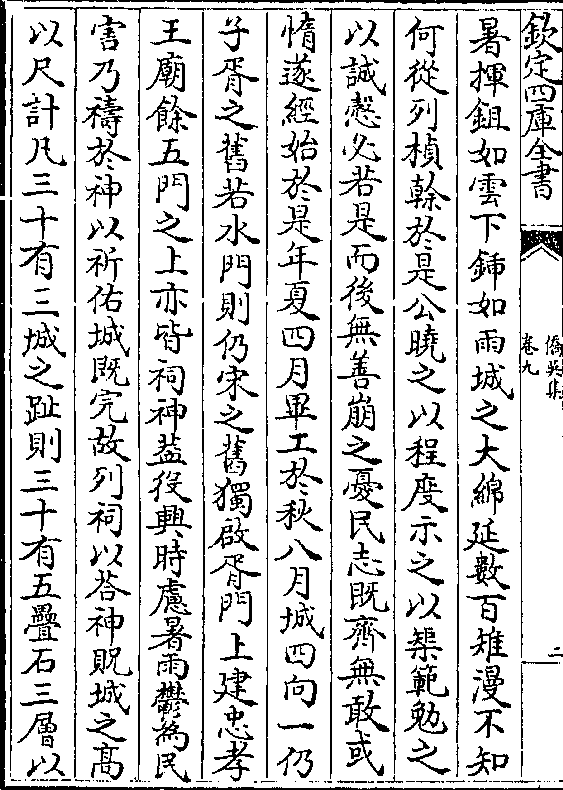 欽定四庫全書
僑吳集
卷九
二
暑揮鉏如雲下鍤如雨城之大綿延數百雉漫不知
何從列楨榦於是公曉之以程度示之以榘範勉之
以誠慤必若是而後無善崩之憂民志既齊無敢或
惰遂經始於是年夏四月畢工於秋八月城四向一仍
子胥之舊若水門則仍宋之舊獨啟胥門上建忠孝
王廟餘五門之上亦皆祠神葢役興時慮暑雨鬱為民
害乃禱於神以祈佑城既完故列祠以荅神貺城之高
以尺計凡三十有三城之趾則三十有五疊石三層以